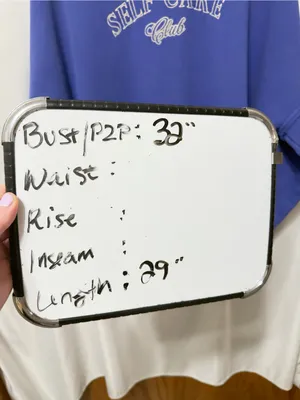 SELF CARE
Club
Bust/P2P: 32"
Waist :
Rise :
Inseam :
Length : 29"